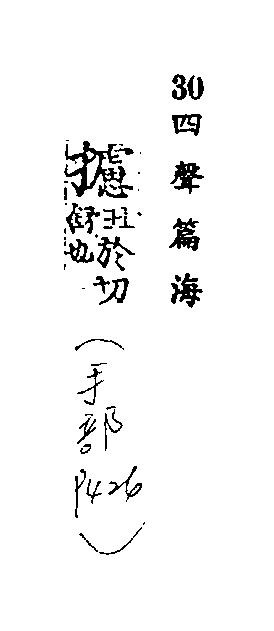 30四聲篇海
攄
丑於切
舒也
(手部
P426)